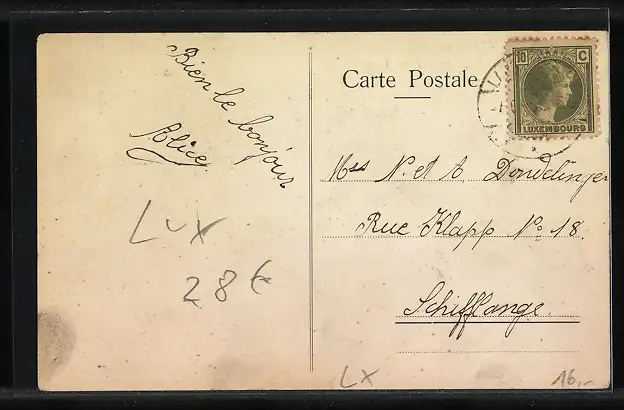 Bien le bonjour
Alice
LUX
28€
Carte Postale
10 C
LUXEMBOURG
Mss N. et A. Dondelinger
Rue Klapp No 18.
Schifflange.
LX
16,-